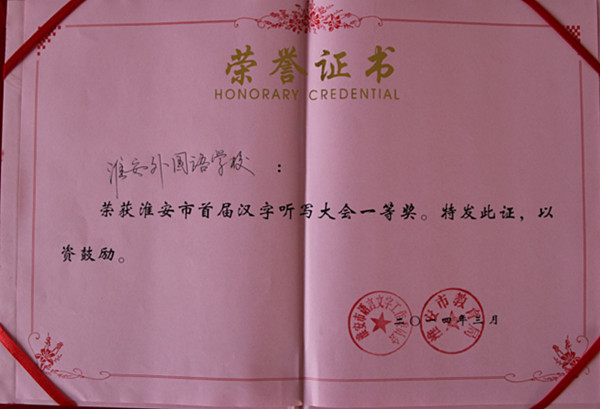 荣誉证书
HONORARY CREDENTIAL
淮安外国语学校：
荣获淮安市首届汉字听写大会一等奖。特发此证，以
资鼓励。
淮安市语言文字工作委员会
淮安市教育局
二〇一四年三月